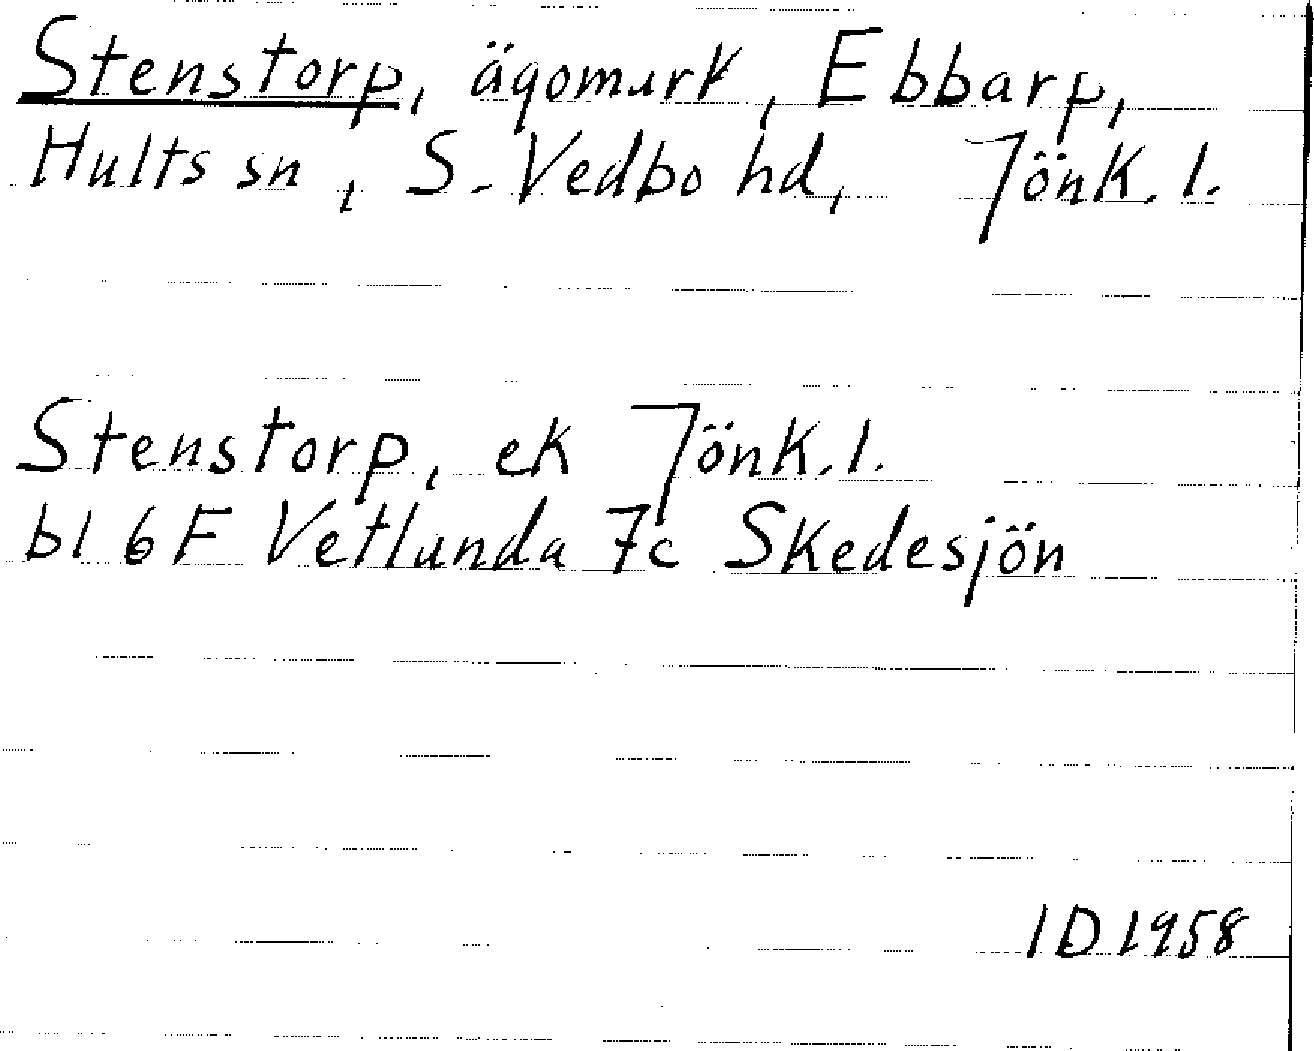 Stenstorp, ägomark, Ebbarp,
Hults sn, S. Vedbo hd, Jönk. l.
Stenstorp, ek Jönk. l.
bl 6F Vetlunda 7c Skedesjön
ID 1958